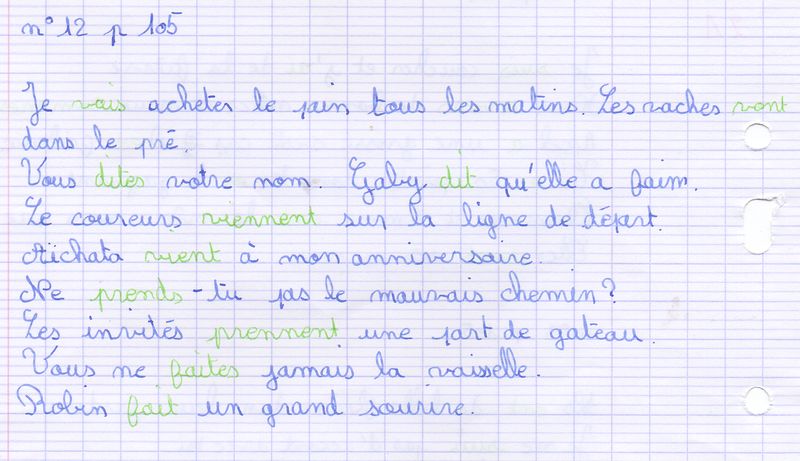 n° 12 p 105
Je vais acheter le pain tous les matins. Les vaches vont
dans le pré.
Vous dites votre nom. Gaby dit qu'elle a faim.
Le coureurs viennent sur la ligne de départ.
Aïchata vient à mon anniversaire.
Ne prends-tu pas le mauvais chemin ?
Les invités prennent une part de gateau.
Vous ne faites jamais la vaisselle.
Robin fait un grand sourire.